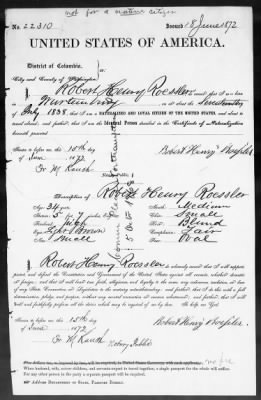 not for a native citizen
No. 22310
Issued 18 June 1872
UNITED STATES OF AMERICA.
District of Columbia.
City and County of Washington
I, Robert Henry Roessler, do
Wurtemburg, on or about the Seventeenth
July 1838, that I am a NATURALIZED AND LOYAL CITIZEN OF THE UNITED STATES, and about to
travel abroad; and further that I am the Identical Person described in the Certificate of Naturalization
herewith presented
Sworn to before me, this 15th day
of June 1872
Robert Henry Roessler
Fr M Rauch
Description of Robert Henry Roessler
Age: 34 years
Stature: 5 feet 7 inches
Forehead: high
Eyes: Light Brown
Nose: Small
Mouth: Medium
Chin: Small
Hair: Blond
Complexion: Fair
Face: Oval
I, Robert Henry Roessler do solemnly swear that I will support,
protect, and defend the Constitution and Government of the United States against all enemies, whether domestic
or foreign; and that I will bear true faith, allegiance, and loyalty to the same, any ordinance, resolution, or law
of any State Convention or Legislature to the contrary notwithstanding; and further, that I do this with a full
determination, pledge, and purpose, without any mental reservation or evasion whatsoever; and further, that I will
well and faithfully perform all the duties which may be required of me by law. So help me God.
Sworn to before me, this 15th day
of June 1872
Robert Henry Roessler
Fr M Rauch
Notary Public
When husband, wife, minor children, and servants expect to travel together, a single passport for the whole will suffice.
For any other person in the party a separate passport will be required.
Address DEPARTMENT OF STATE, PASSPORT BUREAU.